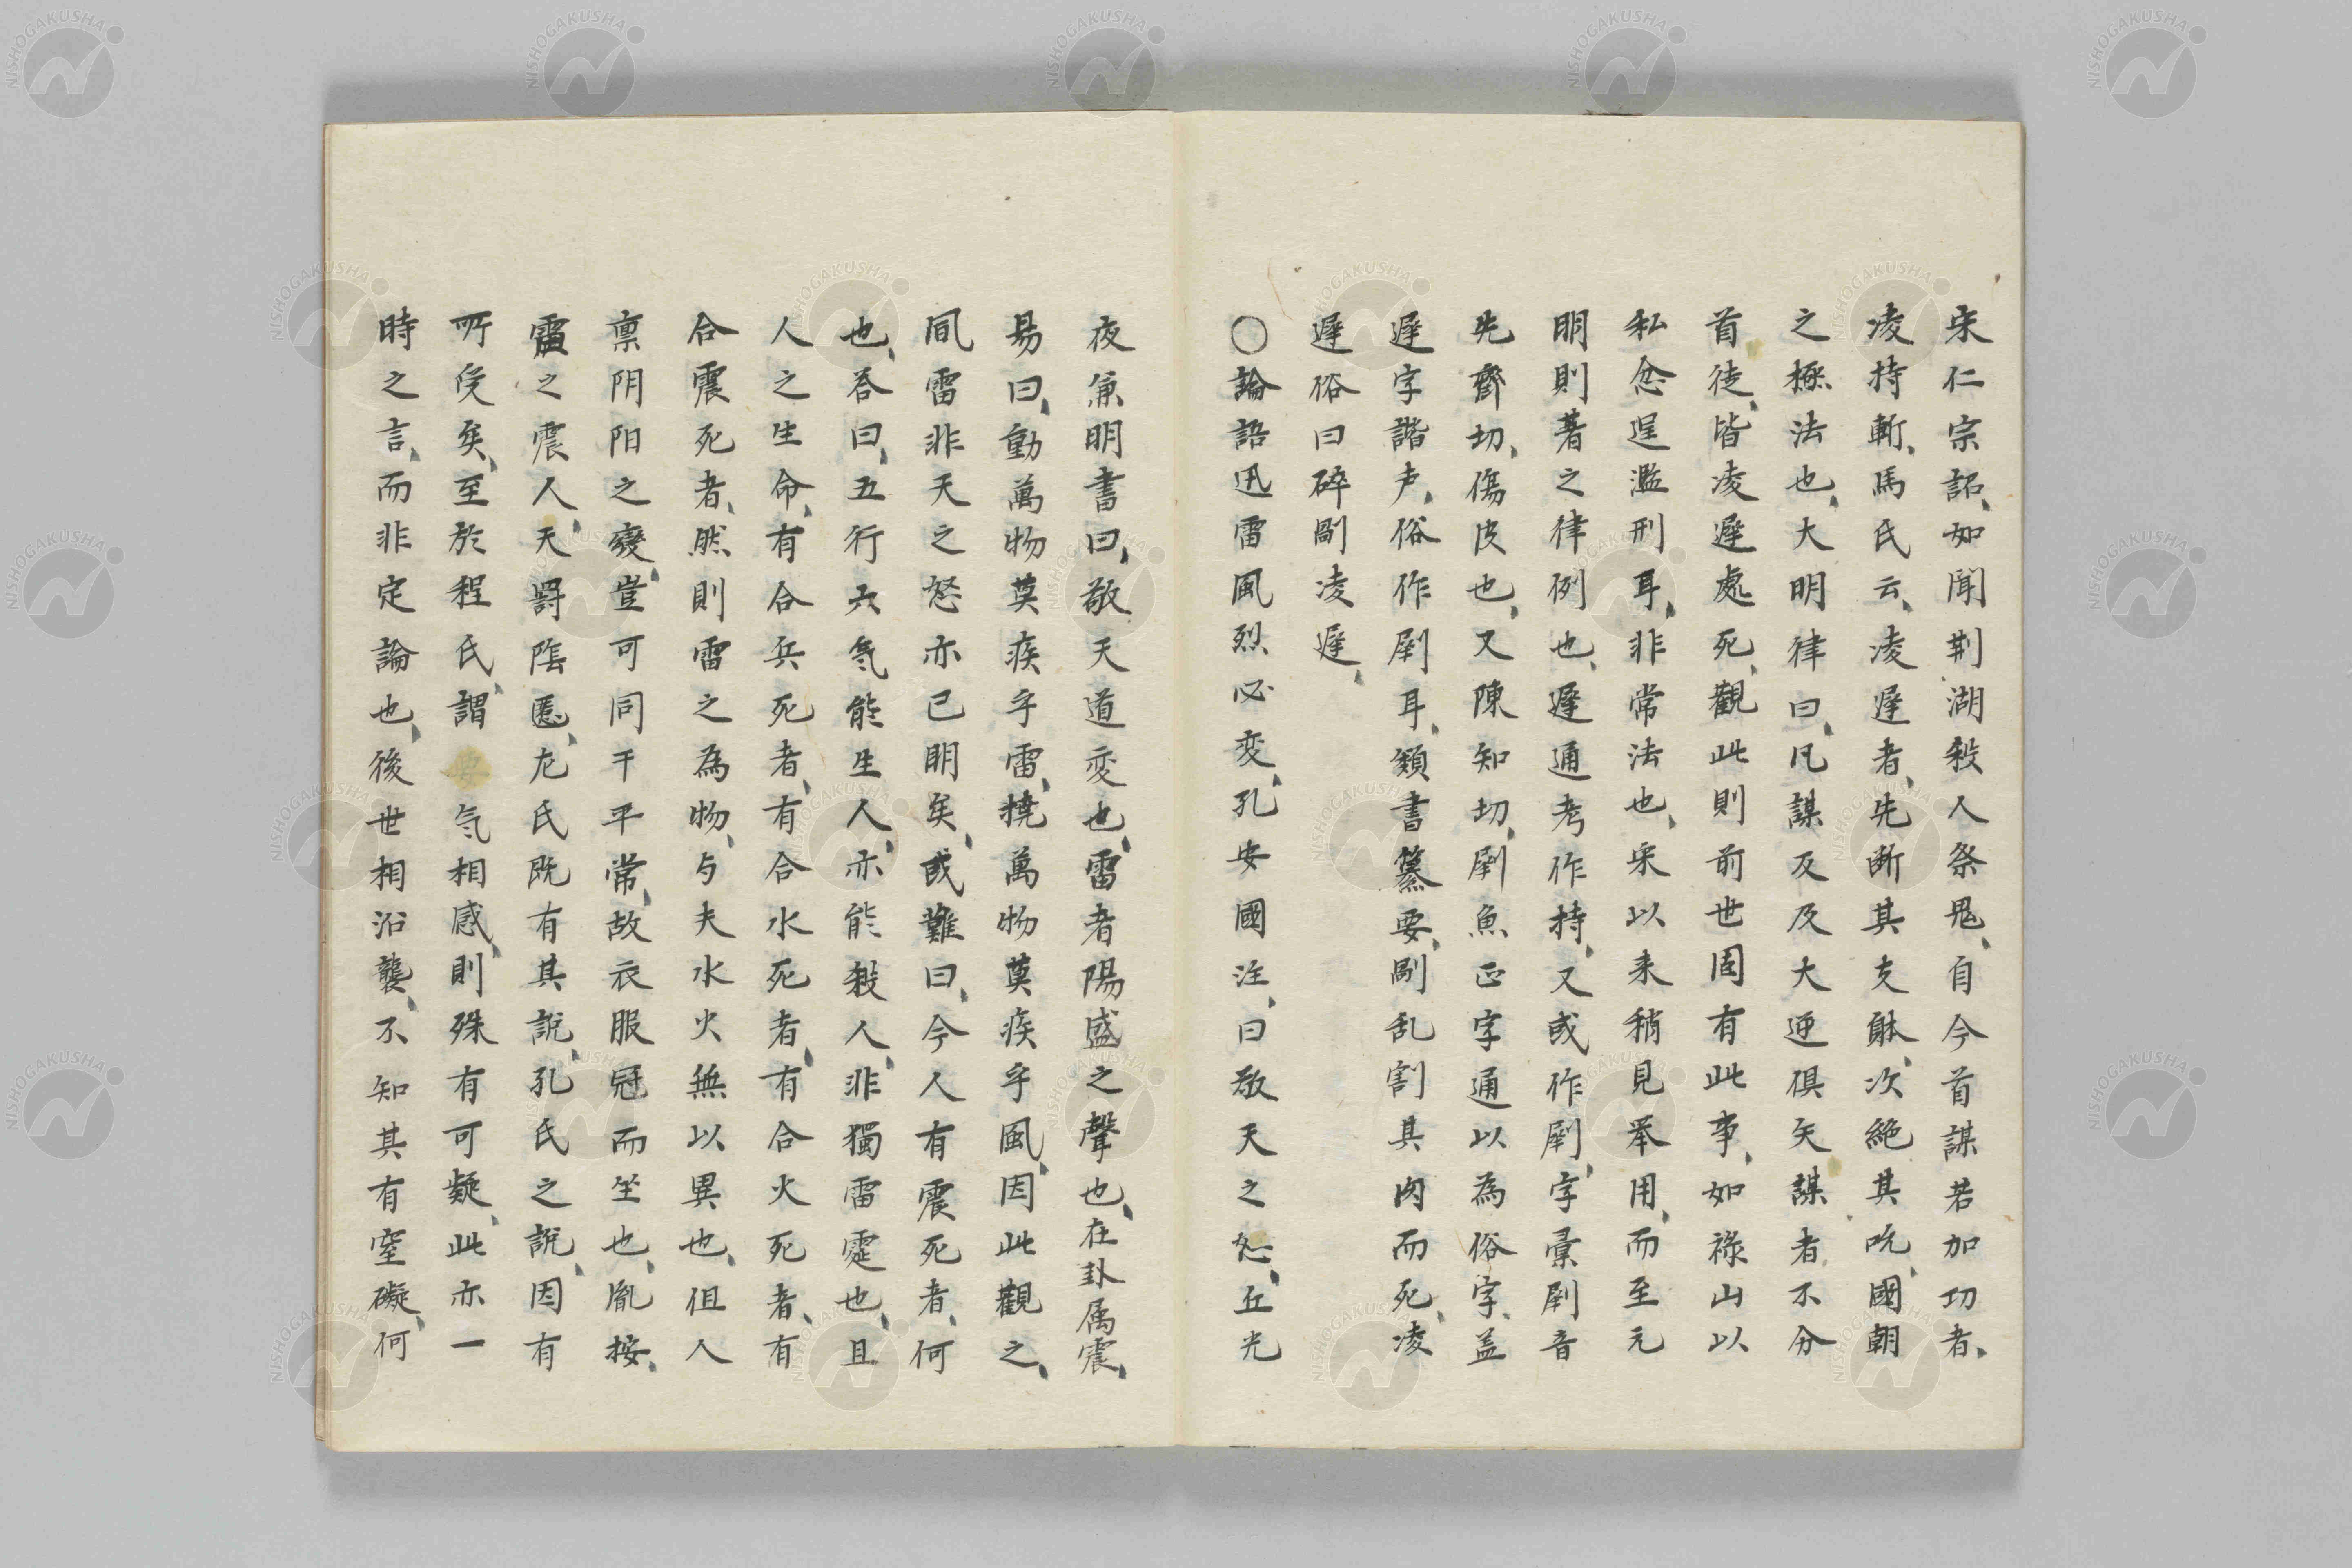 宋仁宗詔、如聞荆湖殺人祭鬼、自今首謀若加功者、
凌持斬、馬氏云、凌遲者、先断其支躰、次絶其吭、國朝
之極法也、大明律曰、凡謀反及大逆俱矢謀者不分
首徒、皆凌遲處死、觀此則前世固有此事、如祿山以
私忿逞濫刑耳、非常法也、宋以来稍見举用、而至元
明則著之律例也、遲通考作持、又或作剧、字彙剧音
先齊切、傷皮也、又陳知切、剧魚正字通以為俗字、盖
遲字諧声、俗作剧耳、類書纂要、剮乱割其肉而死、凌
遲俗曰碎剮凌遲、
〇論語迅雷風烈必変、孔安國注、曰敬天之怒、丘光
夜兼明書曰、敬天道変也、雷者陽盛之聲也、在卦属震、
易曰、動萬物莫疾乎雷、撓萬物莫疾乎風、因此觀之、
間雷非天之怒亦已明矣、或難曰、今人有震死者、何
也、答曰、五行六氣能生人、亦能殺人、非獨雷霆也、且
人之生命、有合兵死者、有合水死者、有合火死者、有
合震死者、然則雷之為物、与夫水火無以異也、但人
禀阴阳之變、豈可同干平常、故衣服冠而坐也、胤按、
靁之震人、天罸陰慝、左氏既有其說、孔氏之說、因有
所受矣、至於程氏、謂 气相感、則殊有可疑、此亦一
時之言、而非定論也、後世相沿襲、不知其有窒礙、何